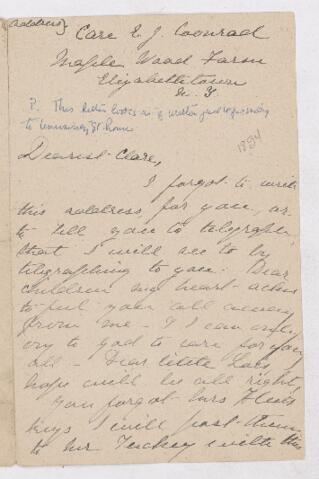 (address)
Care E. J. Conrad
Maple Wood Farm
Elizabethtown
N. Y.
P. This letter looks as if written just
to Convincing St. home
1894
Dearest Clare,
I forgot to write
this address for you, or
to tell you to telegraph,
that I will see to by
telegraphing to you. Dear
children my heart aches
to put you all away
from me - & I can only
cry to God to care for you
all - Dear little Lois
hope will be all right,
You forgot Mrs
keys I will post them
to Mr. Tuckey with this